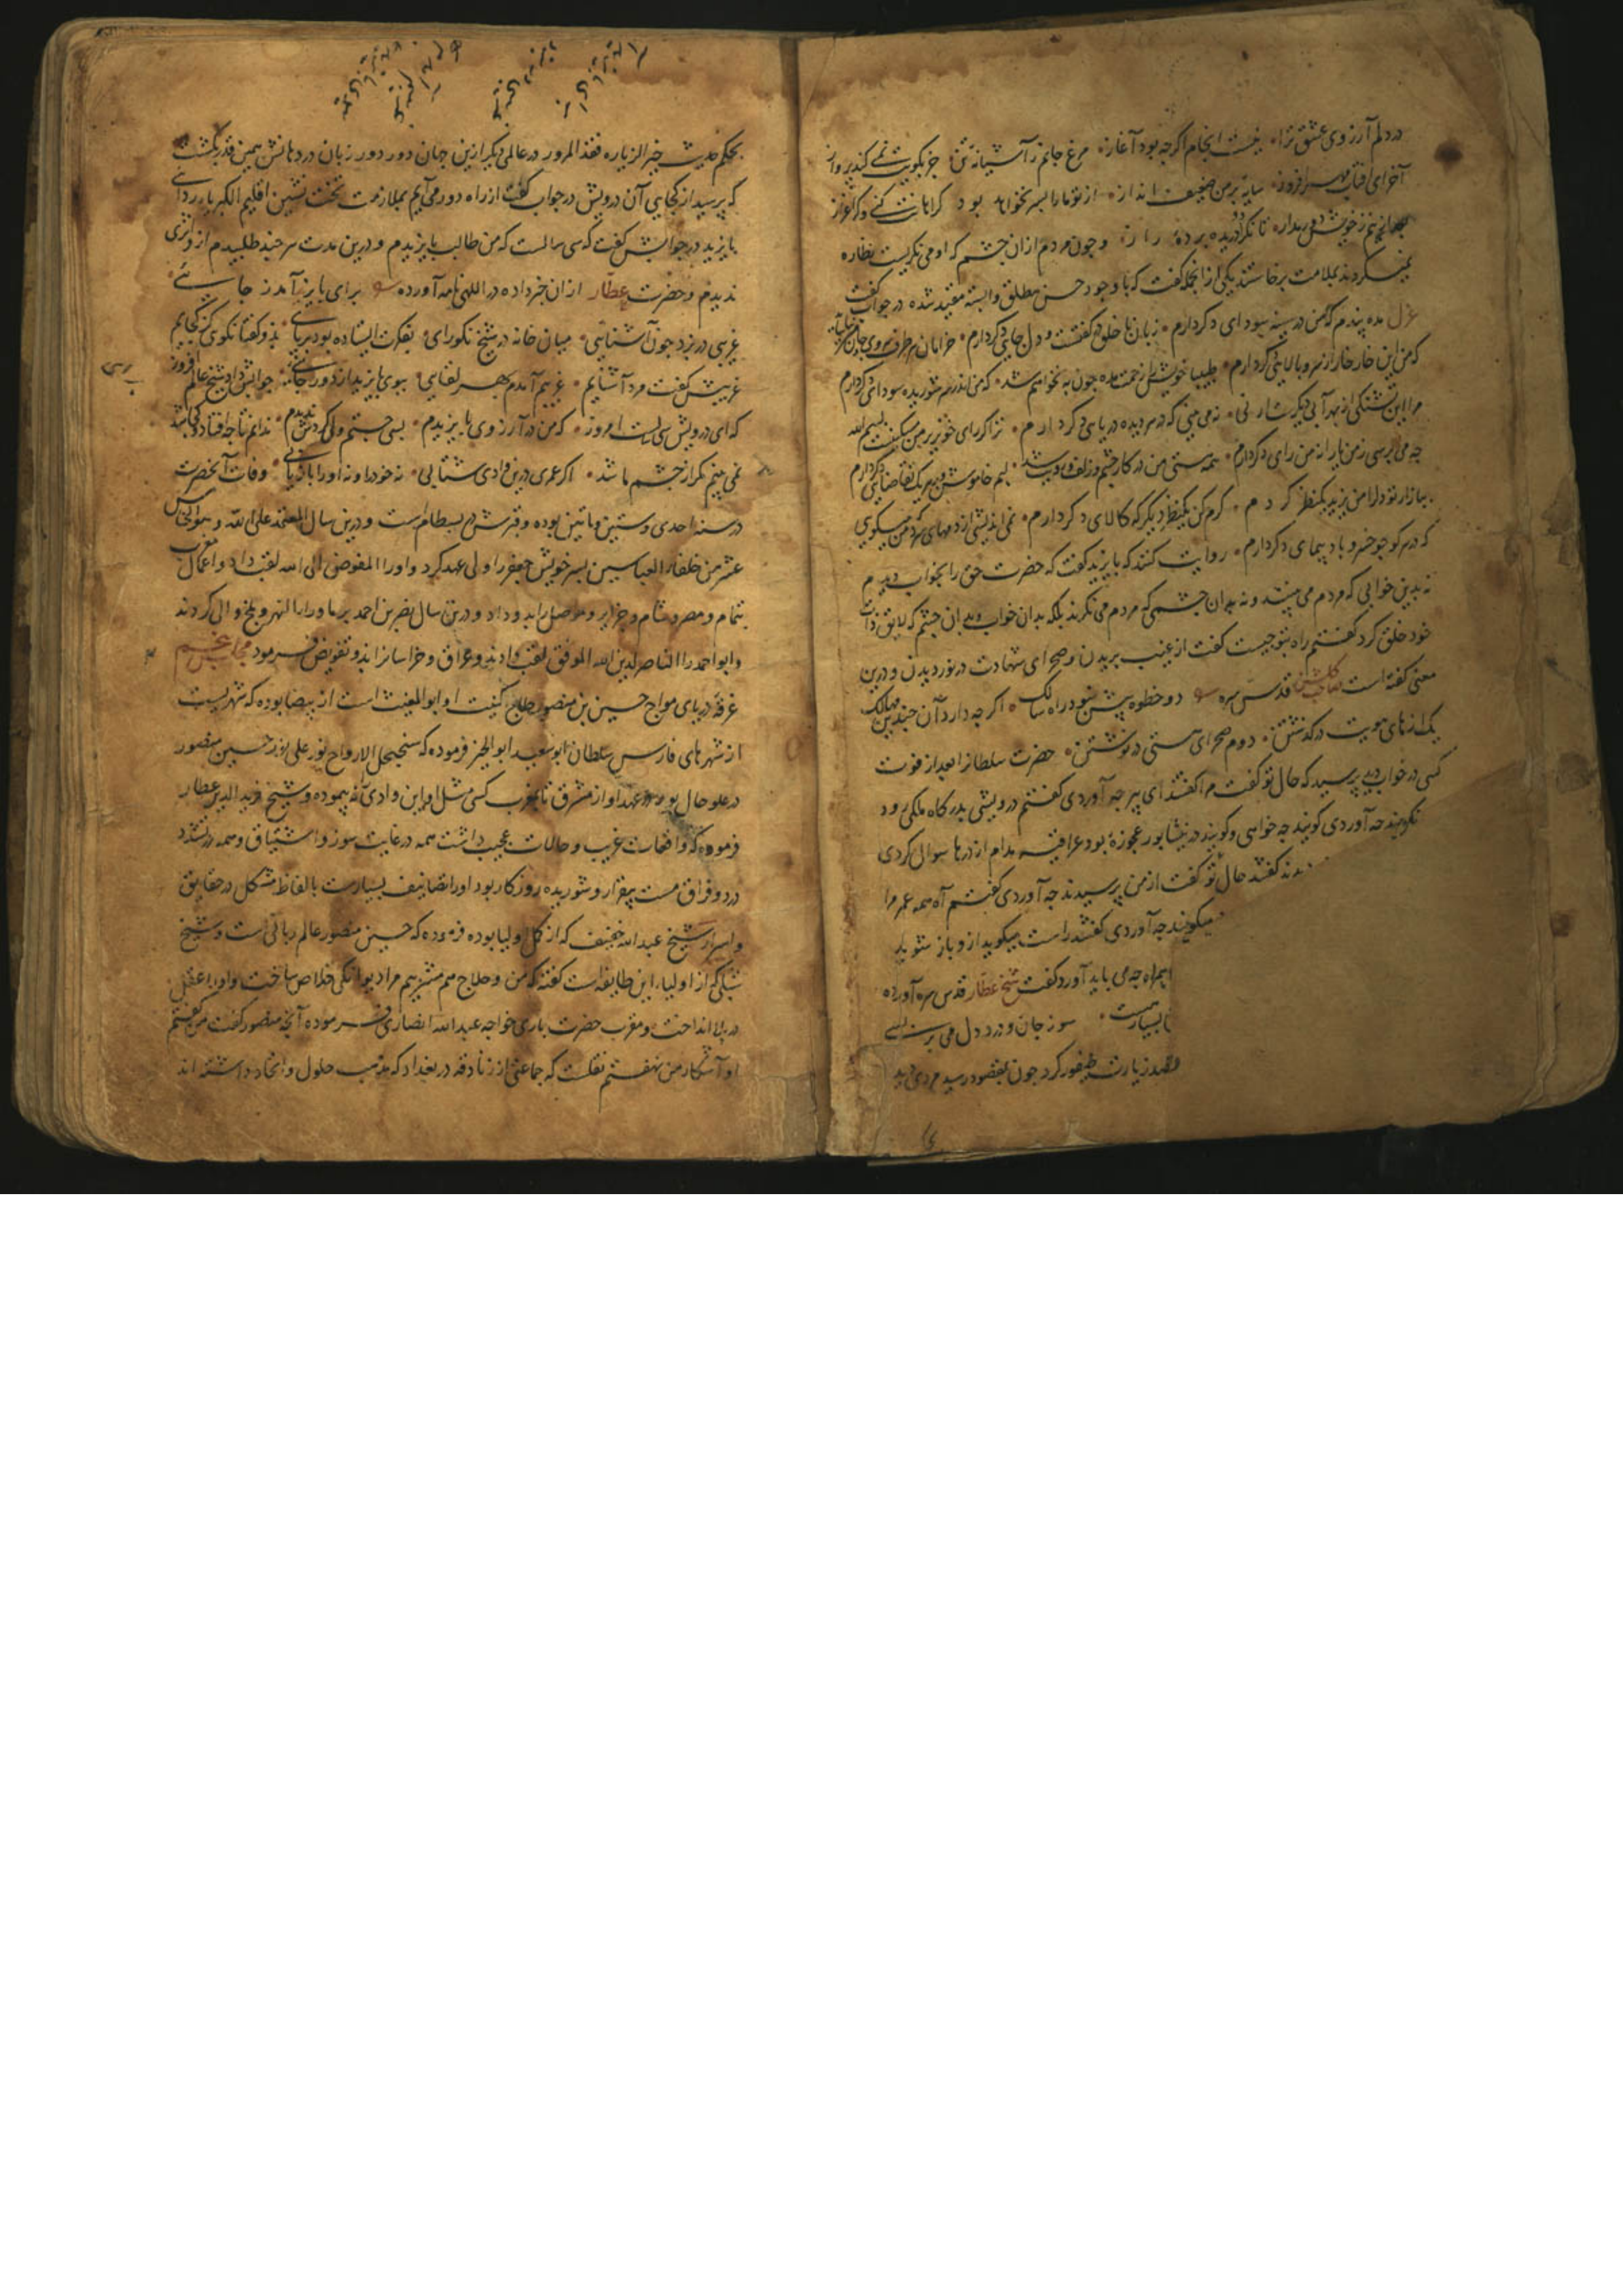 در دلم آرزوی عشق ترا نیست انجام اگرچه بود آغاز مرغ جانم ز آشیانه تن جز بکویت نمی کند پرواز
آخر ای آفتاب مهر افروز سایه بر من ضعیف انداز از تو ما را بسر نخواهد بود گر اهانت کنی وگر اعزاز
تا نگردد دریده پرده راز و چون مردم ازان چشم که او می نگریست نظاره
نمیکردند بملامت برخاستند یکی از انجمله گفت که با وجود حسن مطلق وابسته مقید شده در جواب گفت
غزل مده پندم که من در سینه سودای دگر دارم زبان با خلق در گفتست و دل جای دگر دارم خرامان هر طرف سروی
که من این خار خار از سرو بالای دگر دارم طبیبا خویش را زحمت مده چون به نخواهم شد که من اندر سر شوریده سودای دگر دارم
مرا این تشنگی از بهر آبی دیگرست آری نمی بینی که در هر دیده دریای دگر دارم
چه می پرسی ز من یارا نه من رای دگر دارم همه هستی من در کار چشم و زلف و رویت شد لبم خاموش
ببازار تو دل را من یزید یکنظر کردم کرم کن یکنظر دیگر که کالای دگر دارم نمی اندیشی از دمهای سرد من
که در هر کو چو خسرو باد پیمای دگر دارم روایت کنند که بایزید گفت که حضرت حق را بخواب دیدم
نه بدین خوابی که مردم می بینند و نه بدان چشمی که مردم می نگرند بلکه بدان خواب و بدان چشم که لایق ذات
خود خلق کرد گفتم راه بتو چیست گفت از غیب بریدن و صحرای شهادت درنوردیدن و درین
معنی گفته است صاحب گلشن قدس سره دو خطوه بیش نبود راه سالک اگرچه دارد آن چندین مهالک
یک از های هویت درگذشتن دوم صحرای هستی درنوشتن حضرت سلطانرا بعد از فوت
کسی در خواب دید پرسید که حال تو گفت مرا گفتند ای پیر چه آوردی گفتم درویشی بدرگاه ملکی رود
نگویند چه آوردی گویند چه خواهی و گویند در نیشابور عجوزه بود عراقیه مدام از درها سوال کردی
گفتند حال تو گفت از من پرسیدند چه آوردی گفتم آه همه عمر مرا
میگویند چه آوردی گفتند راست میگوید از و باز شوید
همراه چه می باید آورد گفت شیخ عطار قدس سره آورده
سوز جان و درد دل می بر بسی
قصد زیارت طیفور کرد چون بمقصود رسید مردی دید
بحکم حدیث خیر الزیاره فقد المزور در عالمی دیگر ازین جهان دور دور زبان در دهانش بهمین قدر بگشت
که پرسید از کجایی آن درویش در جواب گفت از راه دور می آیم بملازمت تخت نشین اقلیم الکبریاء ردائی
بایزید در جوابش گفت که سی سالست که من طالب بایزیدم و درین مدت هر چند طلبیدم از و اثری
ندیدم و حضرت عطار ازان خبر داده در الهی نامه آورده برای بایزید آمد ز جائی
غریبی در بزد چون آشنایی میان خانه در شیخ نکورای بفکرت ایستاده بود بر پای بدو گفتا نگوی کز کجایم
غریبش گفت مرد آشنایم غریبم آمدم بهر لقایی ببوی بایزید از دور جایی جوابش داد شیخ عالم افروز
که ای درویش سی سالست امروز که من در آرزوی بایزیدم بسی جستم ولی گردش ندیدم ندانم تا چه افتاد و کجا شد
اگر عمری درین وادی شتابی نه خود را و نه او را بازیابی وفات آنحضرت
در سنه احدی و ستین و ماتین بوده و قبرش هم بسطام است و درین سال المعتمد علی الله و هو الخامس
عشر من خلفاء العباسیین پسر خویش جعفر را ولی عهد کرد و او را المفوض الی الله لقب داد و اعمال مغرب
بتمام و مصر و شام و جزایر و موصل را بدو داد و درین سال نصر بن احمد بر ماوراءالنهر و بلخ والی کردند
و ابو احمد را الناصر لدین الله الموفق لقب دادند و عراق و خراسانرا بدو تفویض فرمود مجلس پنجم
غرقه دریای مواج حسین بن منصور حلاج کنیت او ابو المغیث است از بیضا بوده که شهریست
از شهرهای فارس سلطان ابو سعید ابو الخیر فرموده که سجنجل الارواح نور علی نور حسین منصور
در علو حال بود در عهد او از مشرق تا مغرب کسی مثل او این وادی نه پیموده و شیخ فرید الدین عطار
فرموده که واقعات غریب و حالات عجیب داشت همه در غایت سوز و اشتیاق و همه در شدت
درد و فراق مست بیقرار و شوریده روزگار بود او را تصانیف بسیارست بالفاظ مشکل در حقایق
و اسرار شیخ عبد الله خفیف که از کمل اولیا بوده فرموده که حسین منصور عالم ربانی است و شیخ
شبلی که از اولیاء این طایفه است گفته که من و حلاج هم مشربیم مرا دیوانگی خلاص ساخت و او را عقل
در بلا انداخت و مقرب حضرت باری خواجه عبد الله انصاری فرموده آنچه منصور گفت من گفتم
او آشکار من نهفتم نقلست که جماعتی از زنادقه در بغداد که مذهب حلول و اتحاد داشته اند